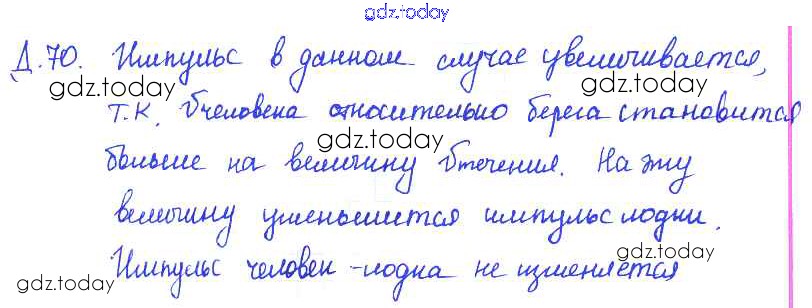 gdz.today
Д.70. Импульс в данном случае увеличивается,
gdz.today
т.к. υ человека относительно берега становится
gdz.today
больше на величину υ течения. На эту
величину уменьшится импульс лодки.
gdz.today
Импульс человек-лодка не изменяется
gdz.today